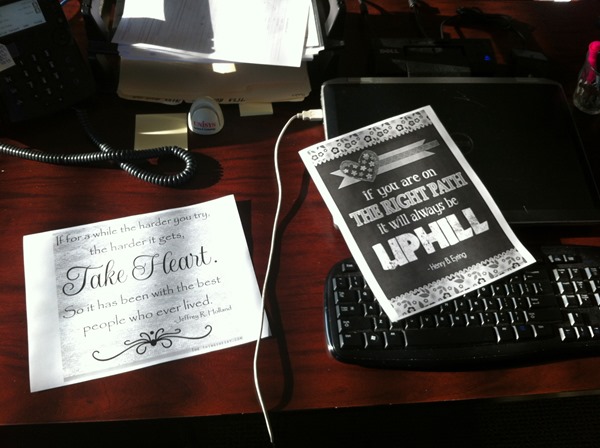 If for a while the harder you try,
the harder it gets,
Take Heart.
So it has been with the best
people who ever lived.
- Jeffrey R. Holland
If you are on
THE RIGHT PATH
it will always be
UPHILL
- Henry B. Eyring
DELL